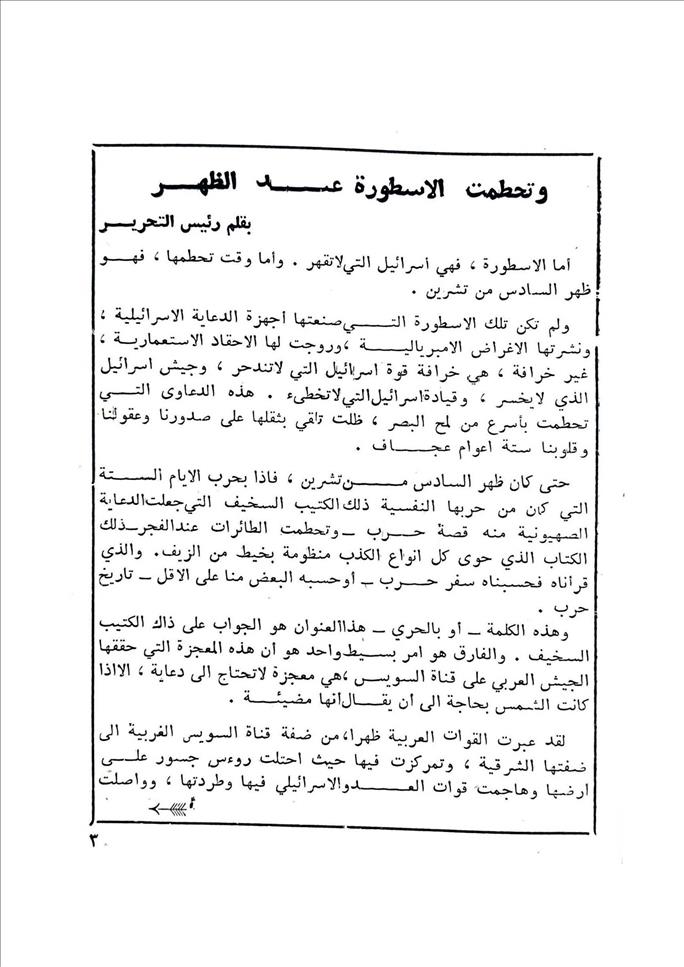 وتحطمت الاسطورة عند الظهر
بقلم رئيس التحرير
أما الاسطورة ، فهي أسرائيل التي لاتقهر . وأما وقت تحطمها ، فهو
ظهر السادس من تشرين .
ولم تكن تلك الاسطورة التي صنعتها أجهزة الدعاية الاسرائيلية ،
ونشرتها الاغراض الامبريالية ، وروجت لها الاحقاد الاستعمارية ،
غير خرافة ، هي خرافة قوة اسرائيل التي لاتندحر ، وجيش اسرائيل
الذي لايخسر ، وقيادة اسرائيل التي لاتخطىء . هذه الدعاوى التي
تحطمت بأسرع من لمح البصر ، ظلت تلقي بثقلها على صدورنا وعقولنا
وقلوبنا ستة اعوام عجاف .
حتى كان ظهر السادس من تشرين ، فاذا بحرب الايام الستة
التي كان من حربها النفسية ذلك الكتيب السخيف التي جعلت الدعاية
الصهيونية منه قصة حرب ــ وتحطمت الطائرات عند الفجر ــ ذلك
الكتاب الذي حوى كل انواع الكذب منظومة بخيط من الزيف. والذي
قرأناه فحسبناه سفر حرب ــ أوحسبه البعض منا على الاقل ــ تاريخ
حرب .
وهذه الكلمة ــ أو بالحري ــ هذا العنوان هو الجواب على ذاك الكتيب
السخيف . والفارق هو امر بسيط واحد هو أن هذه المعجزة التي حققها
الجيش العربي على قناة السويس ، هي معجزة لاتحتاج الى دعاية ، الااذا
كانت الشمس بحاجة الى أن يقال أنها مضيئة .
لقد عبرت القوات العربية ظهرا، من ضفة قناة السويس الغربية الى
ضفتها الشرقية ، وتمركزت فيها حيث احتلت روءس جسور على
ارضها وهاجمت قوات العدو الاسرائيلي فيها وطردتها ، وواصلت
٣